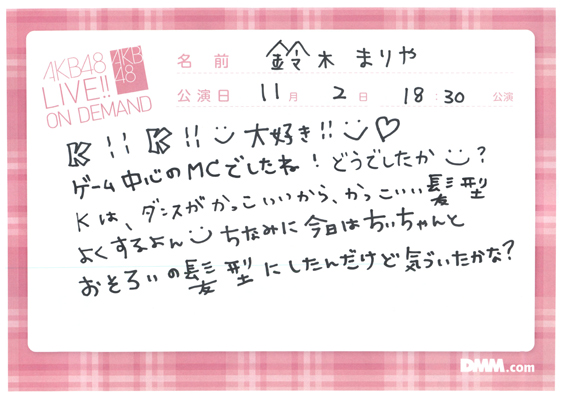 AKB48
LIVE!!
ON DEMAND
AKB
48
名前 鈴木まりや
公演日 11月 2日 18:30 公演
K!! K!! 大好き!! ♡
ゲーム中心のMCでしたね！どうでしたか？
Kは、ダンスがかっこいいから、かっこいい髪型
よくするよん ちなみに今日はちぃちゃんと
おそろぃの髪型にしたんだけど気づいたかな？
DMM.com